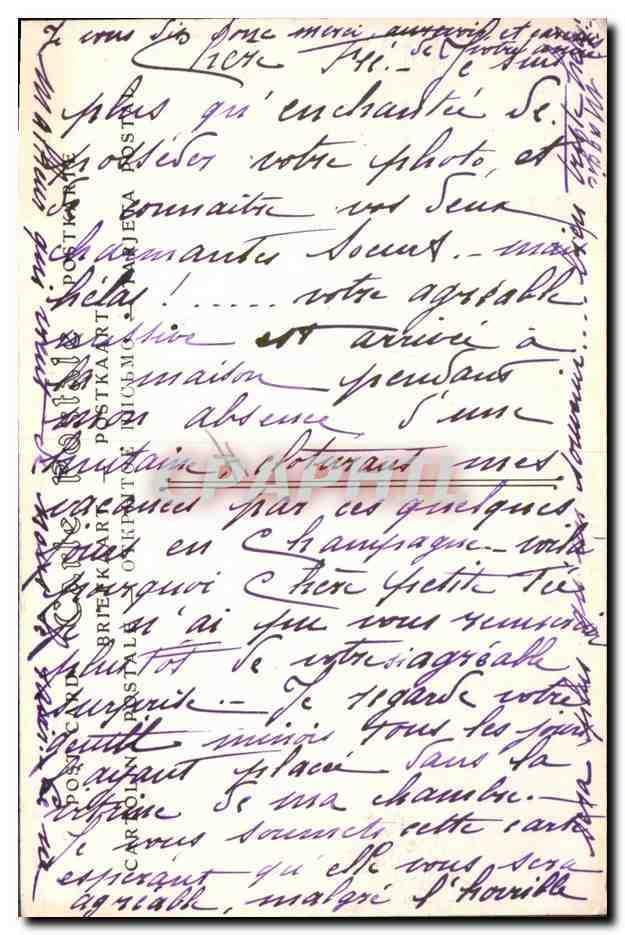 Je vous dis donc merci, aurevoir et
de votre amie
Chère Fée. - Je suis
plus qu'enchantée de
posséder votre photo, et
de connaitre vos deux
charmantes soeurs. - mais
hélas ! ..... votre agréable
missive est arrivée à
la maison pendant
mon absence d'une
huitaine, cloturant mes
vacances par ces quelques
jours en Champagne - voilà
pourquoi Chère petite Fée
je n'ai pu vous remercier
plutôt de votre si agréable
surprise. - Je regarde votre
gentil minois tous les jours
ayant placée dans la
vitrine de ma chambre. -
Je vous soumets cette carte
espérant qu'elle vous sera
agréable, malgré l'horrible
malheur qui vient de nous
sera plus qu'un souvenir ... bien triste
Carte Postale
POST CARD POSTKARTE
BRIEFKAART — POSTKAART
CARTOLINA POSTALE — ОТКРЫТОЕ ПИСЬМО — TARJETA POSTAL
CPARAMA